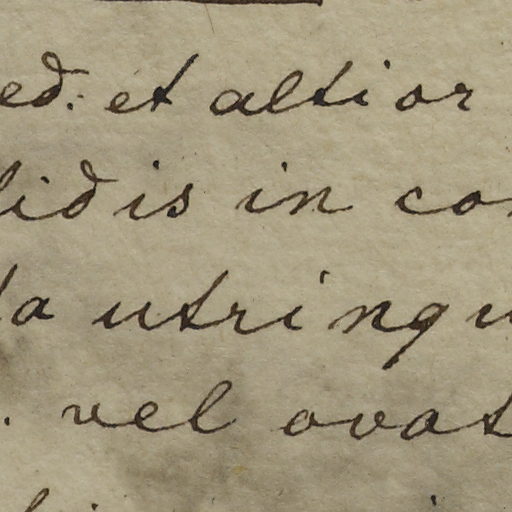 ed: et altior
lidis in con
ta utringu
. vel ovat